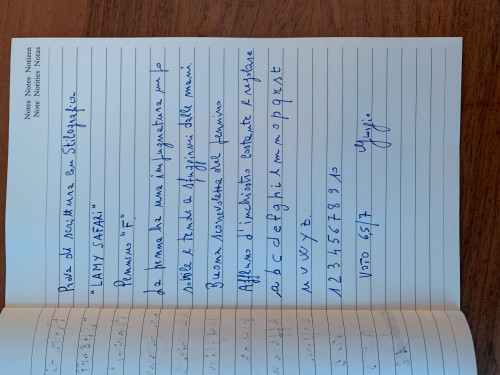 Notes Notes Notizen
Note Notities Notas
Prova di scrittura con Stilografica
"LAMY SAFARI"
Pennino "F"
La penna ha una impugnatura un po
sottile e tende a sfuggirmi dalle mani
Buona scorrevolezza del pennino
Afflusso d'inchiostro costante e regolare
a b c d e f g h i l m n o p q r s t
u v w y z
1 2 3 4 5 6 7 8 9 10
VOTO 6,5/7
Giorgio